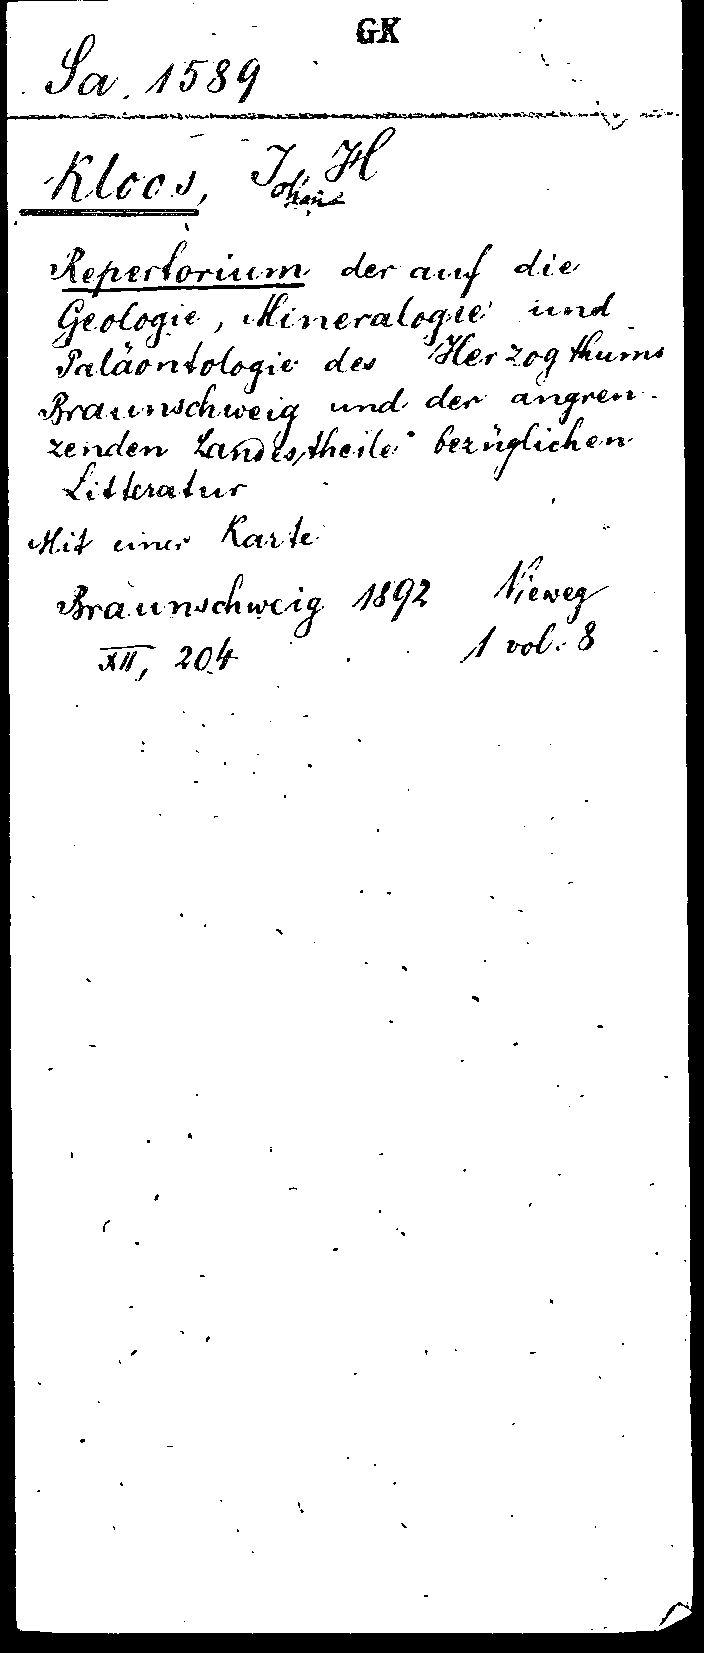 GK
Sa. 1589
Kloos, Johans H
Repertorium der auf die
Geologie, Mineralogie und
Paläontologie des Herzogthums
Braunschweig und der angren-
zenden Landestheile bezüglichen
Litteratur
Mit einer Karte
Braunschweig 1892 Vieweg
XII, 204 1 vol. 8